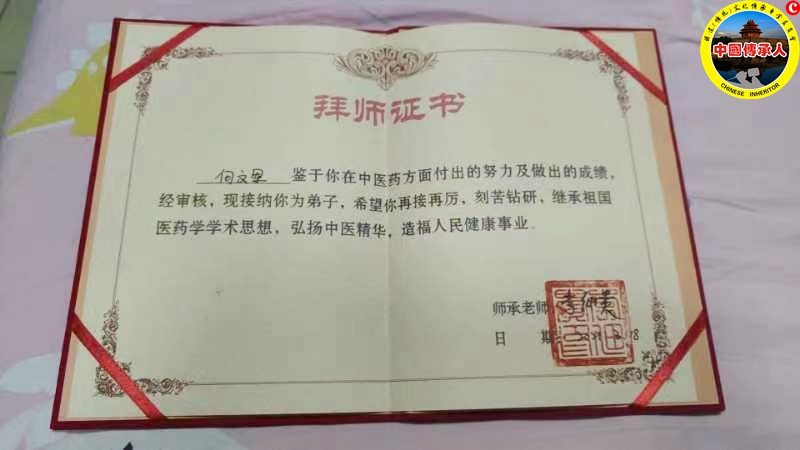 中國傳承人
CHINESE INHERITOR
拜师证书
鉴于你在中医药方面付出的努力及做出的成绩，
经审核，现接纳你为弟子，希望你再接再厉，刻苦钻研，继承祖国
医药学学术思想，弘扬中医精华，造福人民健康事业。
师承老师
日 期